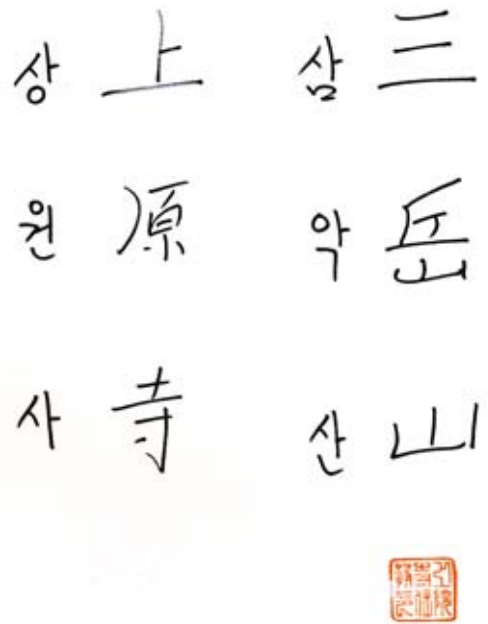 삼 三
악 岳
산 山
상 上
원 原
사 寺